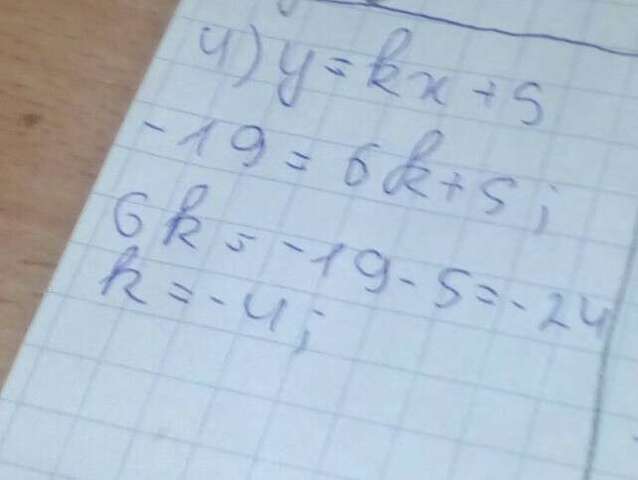 4) y = kx + 5
-19 = 6k + 5;
6k = -19 - 5 = -24
k = -4;